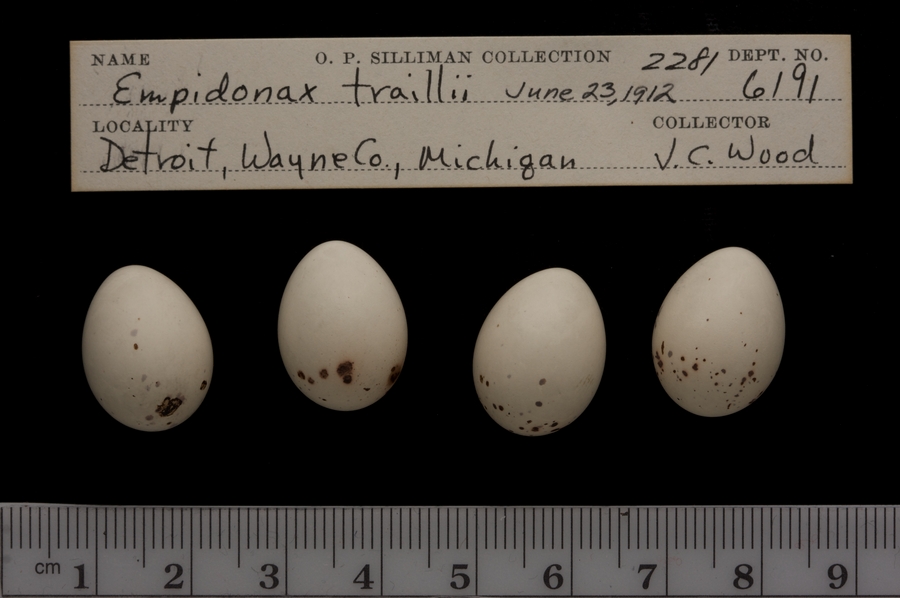 NAME O. P. SILLIMAN COLLECTION 2281 DEPT. NO.
Empidonax traillii June 23, 1912 6191
LOCALITY COLLECTOR
Detroit, Wayne Co., Michigan J. C. Wood
cm 1 2 3 4 5 6 7 8 9